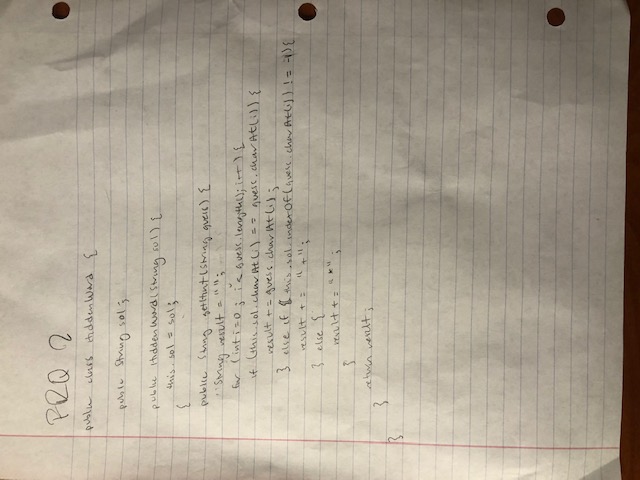 FRQ 2
public class HiddenWord {
public String sol;
public HiddenWord(String sol) {
this.sol = sol;
{
public String getHint(String guess) {
String result = "";
for (int i=0; i< guess.length(); i++) {
if (this.sol.charAt(i) == guess.charAt(i)) {
result += guess.charAt(i);
} else if (this.sol.indexOf(guess.charAt(i)) != -1) {
result += "+";
} else {
result += "*";
}
return result;
}
}